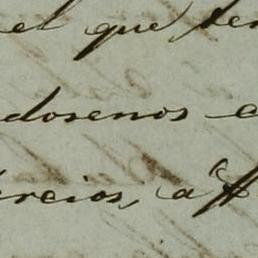 el que ten
dosenos e
ercios, a